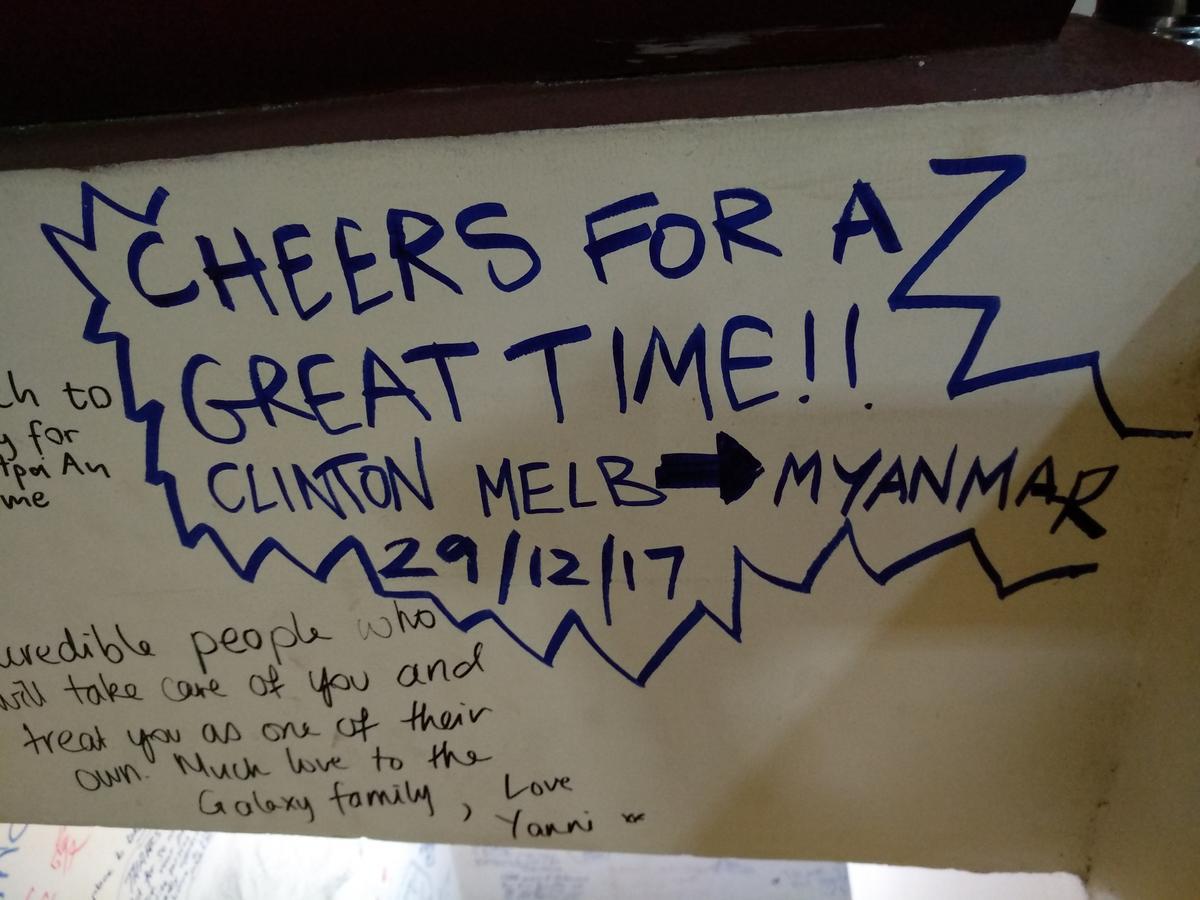 CHEERS FOR A
GREAT TIME!!
CLINTON MELB ➡ MYANMAR
29/12/17
to
for
An
me
people who
will take care of you and
treat you as one of their
own. Much love to the
Galaxy family, Love
Yanni xx